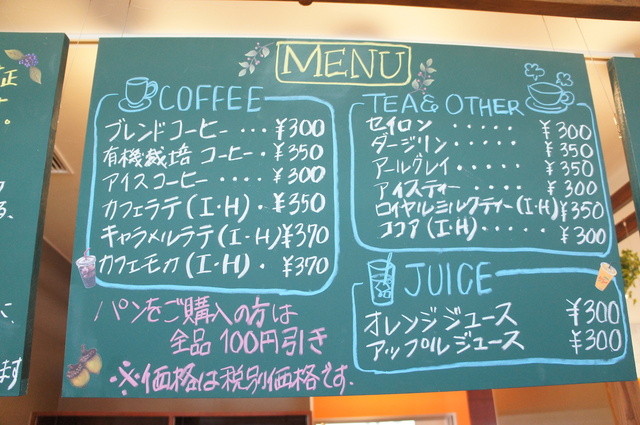 MENU
COFFEE
ブレンドコーヒー・・・・¥300
有機栽培 コーヒー・・¥350
アイスコーヒー・・・・¥300
カフェラテ(I・H)・¥350
キャラメルラテ(I・H)¥370
カフェモカ(I・H)・¥370
パンをご購入の方は
全品 100円引き
※価格は税別価格です.
TEA & OTHER
セイロン・・・・・¥300
ダージリン・・・・・¥350
アールグレイ・・・・・¥350
アイスティー・・・・¥300
ロイヤルミルクティー(I・H)¥350
ココア(I・H)・・・・¥300
JUICE
オレンジジュース ¥300
アップルジュース ¥300
ます